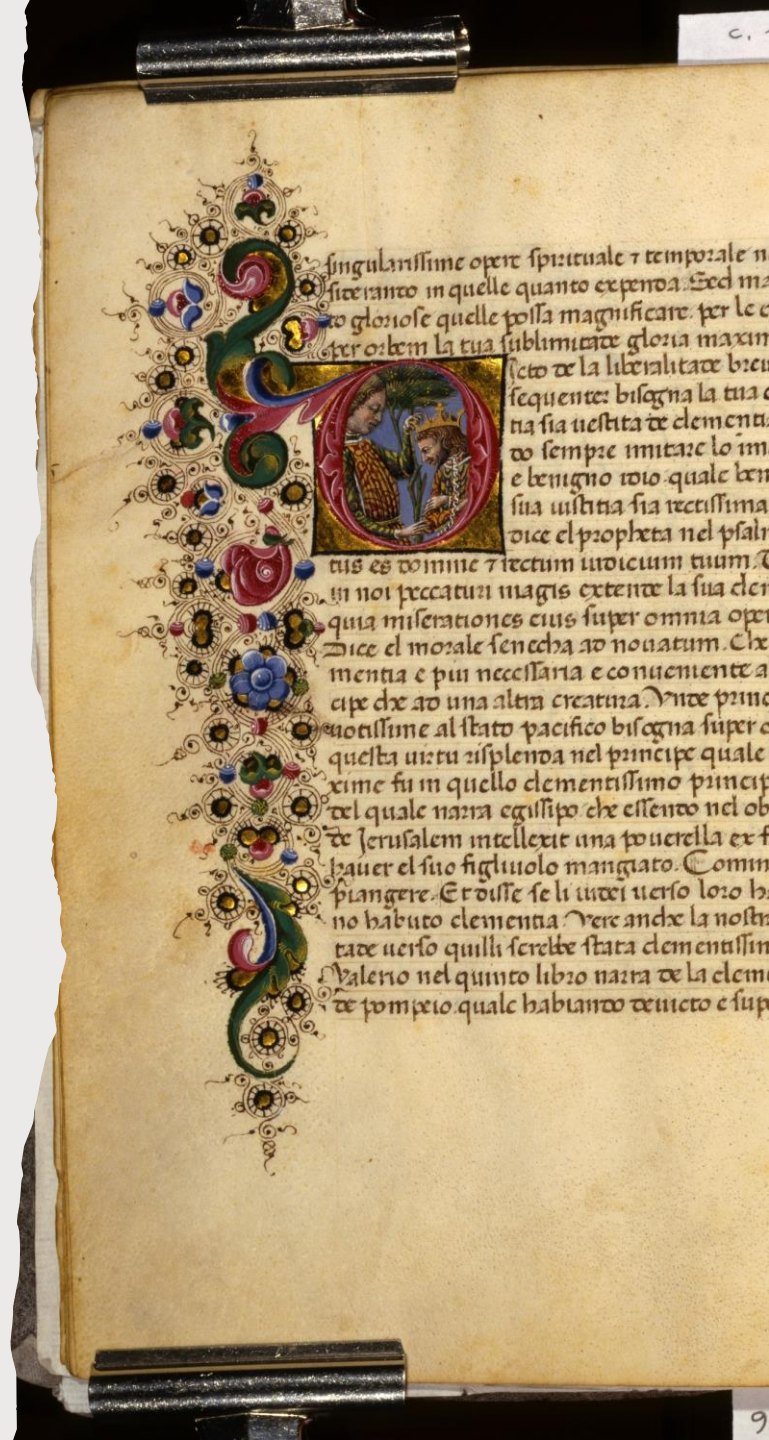 c.
singularissime opere spirituale ⁊ temporale n
siderando in quelle quanto expenda. Ecci ma
do gloriose quelle possa magnificare. per le c
per orbem la tua sublimitade gloria maxim
Dcto de la liberalitade breu
sequenter bisogna la tua c
tia sia uestita de clementi
do sempre imitare lo im
e benigno idio quale ben
sua iustitia sia rectissima
dice el propheta nel psalm
tus es domine ⁊ rectum iudicium tuum. T
in noi peccaturi magis extende la sua clem
quia miserationes eius super omnia oper
Dice el morale senecha ad nouatum. Che
mentia e piu necessaria e conueniente a
cipe che ad una altra creatura. Vnde princ
uotissime al stato pacifico bisogna super o
questa uirtu risplenda nel principe quale
xime fu in quello clementissimo princip
del quale narra egissipo che essendo nel ob
de Jerusalem intellexit una pouerella ex f
hauer el suo figliuolo mangiato. Comin
piangere. Et disse se li iudei uerso loro ha
no habuto clementia. Vere anche la nostra
tade uerso quilli serebbe stata clementissim
Valerio nel quinto libro narra de la cleme
de pompeio. quale habiando deuicto e sup
9